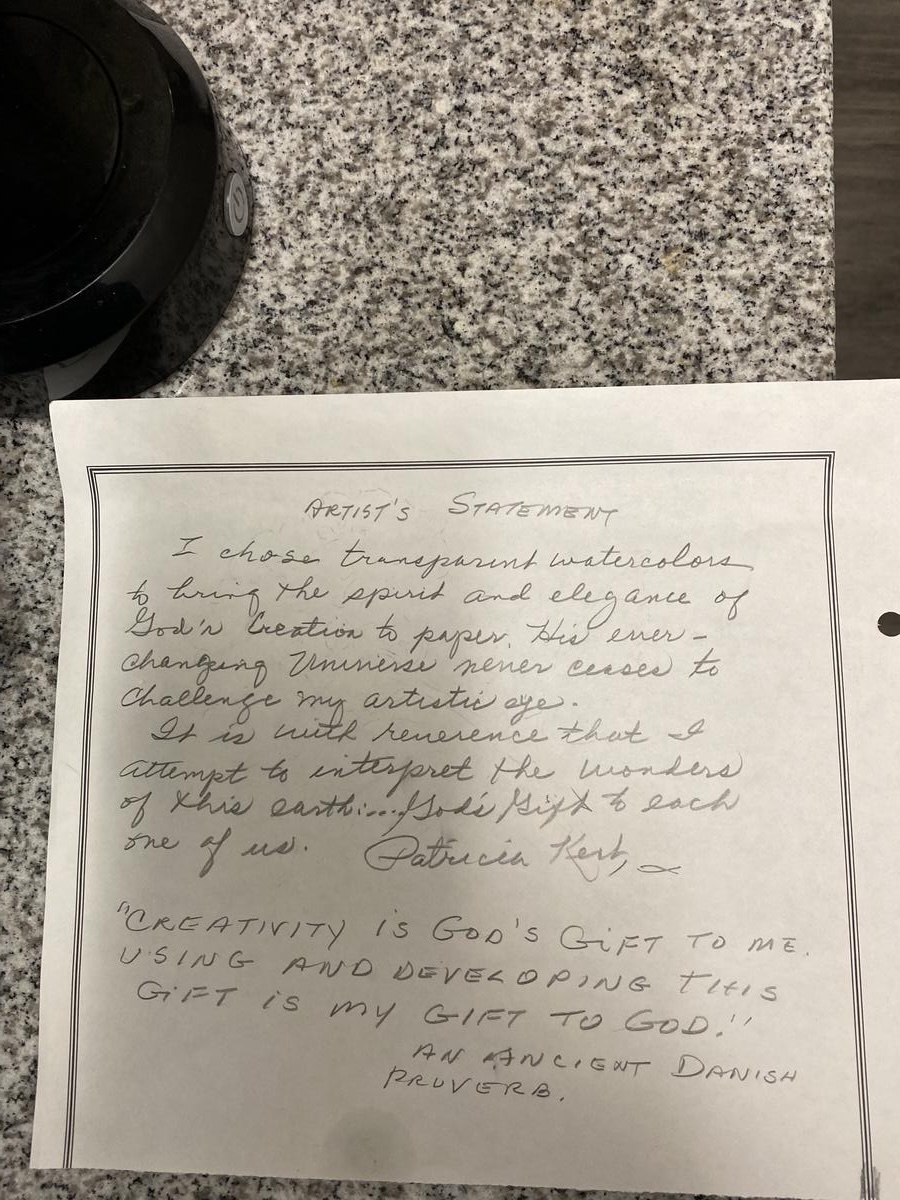 ARTIST'S STATEMENT
I chose transparent watercolors
to bring the spirit and elegance of
God's Creation to paper. His ever-
changing Universe never ceases to
challenge my artistic eye.
It is with reverence that I
attempt to interpret the wonders
of this earth:...God's Gift to each
one of us. Patricia
"CREATIVITY IS GOD'S GIFT TO ME.
USING AND DEVELOPING THIS
GIFT IS MY GIFT TO GOD."
AN ANCIENT DANISH
PROVERB.